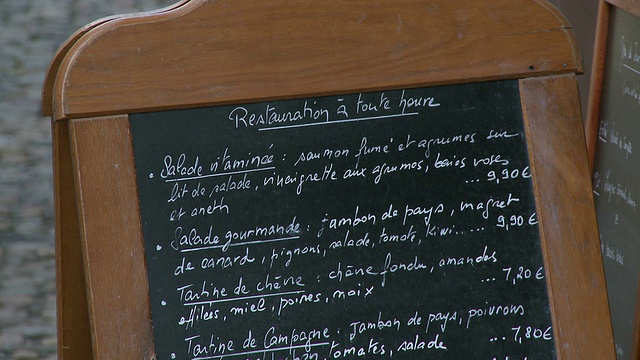 Restauration à toute heure
• Salade vitaminée : saumon fumé et agrumes sur
lit de salade, vinaigrette aux agrumes, baies roses
et aneth ... 9,90 €
• Salade gourmande : jambon de pays, magret
de canard, pignons, salade, tomate, kiwi... ... 9,90 €
• Tartine de chèvre : chèvre fondu, amandes
effilées, miel, poires, noix ... 7,20 €
• Tartine de Campagne : jambon de pays, poivrons
tomates, salade ... 7,80 €